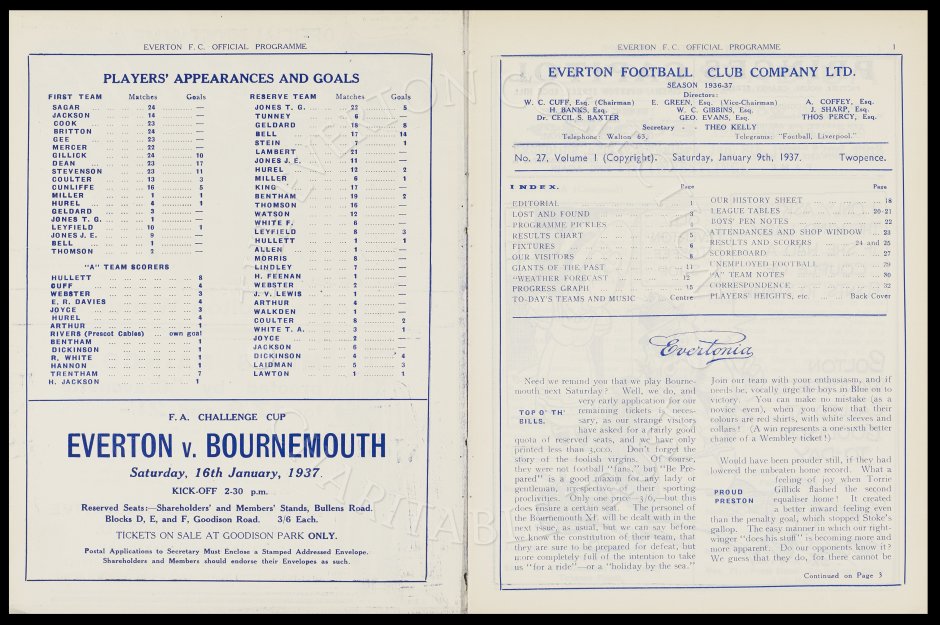 EVERTON F.C. OFFICIAL PROGRAMME
PLAYERS' APPEARANCES AND GOALS
FIRST TEAM Matches Goals
SAGAR 24 —
JACKSON 14 —
COOK 23 —
BRITTON 24 —
GEE 23 —
MERCER 22 —
GILLICK 24 10
DEAN 23 17
STEVENSON 23 11
COULTER 13 3
CUNLIFFE 16 5
MILLER 1 1
HUREL 4 1
GELDARD 3 —
JONES T. G. 1 —
LEYFIELD 10 1
JONES J. E. 9 —
BELL 1 —
THOMSON 2 —
"A" TEAM SCORERS
HULLETT 8
CUFF 4
WEBSTER 3
E. R. DAVIES 4
JOYCE 3
HUREL 4
ARTHUR 1
RIVERS (Prescot Cables) own goal
BENTHAM 1
DICKINSON 1
R. WHITE 1
HANNON 1
TRENTHAM 7
H. JACKSON 1
RESERVE TEAM Matches Goals
JONES T. G. 22 5
TUNNEY 6 —
GELDARD 18 8
BELL 17 14
STEIN 7 1
LAMBERT 21 —
JONES J. E. 11 —
HUREL 12 2
MILLER 6 1
KING 17 —
BENTHAM 19 2
THOMSON 16 —
WATSON 12 —
WHITE F. 6 —
LEYFIELD 8 3
HULLETT 1 1
ALLEN 1 —
MORRIS 8 —
LINDLEY 7 —
H. FEENAN 1 —
WEBSTER 2 —
J. V. LEWIS 1 —
ARTHUR 4 —
WALKDEN 1 —
COULTER 8 2
WHITE T. A. 3 1
JOYCE 2 —
JACKSON 6 —
DICKINSON 4 4
LAIDMAN 5 3
LAWTON 1 1
F.A. CHALLENGE CUP
EVERTON v. BOURNEMOUTH
Saturday, 16th January, 1937.
KICK-OFF 2-30 p.m.
Reserved Seats:—Shareholders' and Members' Stands, Bullens Road.
Blocks D, E, and F, Goodison Road. 3/6 Each.
TICKETS ON SALE AT GOODISON PARK ONLY.
Postal Applications to Secretary Must Enclose a Stamped Addressed Envelope.
Shareholders and Members should endorse their Envelopes as such.
EVERTON F.C. OFFICIAL PROGRAMME 1
EVERTON FOOTBALL CLUB COMPANY LTD.
SEASON 1936-37
Directors:
W. C. CUFF, Esq. (Chairman) E. GREEN, Esq. (Vice-Chairman) A. COFFEY, Esq.
H. BANKS, Esq. W. C. GIBBINS, Esq. J. SHARP, Esq.
Dr. CECIL S. BAXTER GEO. EVANS, Esq. THOS PERCY, Esq.
Secretary - - THEO KELLY
Telephone: Walton 63. Telegrams: "Football, Liverpool."
No. 27, Volume 1 (Copyright). Saturday, January 9th, 1937. Twopence.
INDEX. Page
EDITORIAL 1
LOST AND FOUND 3
PROGRAMME PICKLES 4
RESULTS CHART 5
FIXTURES 6
OUR VISITORS 8
GIANTS OF THE PAST 11
"WEATHER FORECAST 12
PROGRESS GRAPH 15
TO-DAY'S TEAMS AND MUSIC Centre
Page
OUR HISTORY SHEET 18
LEAGUE TABLES 20-21
BOYS' PEN NOTES 22
ATTENDANCES AND SHOP WINDOW 23
RESULTS AND SCORERS 24 and 25
SCOREBOARD 27
UNEMPLOYED FOOTBALL 29
"A" TEAM NOTES 30
CORRESPONDENCE 32
PLAYERS' HEIGHTS, etc. Back Cover
Evertonia
Need we remind you that we play Bourne-
mouth next Saturday? Well, we do, and
very early application for our
TOP O' TH' BILLS.
remaining tickets is neces-
sary, as our strange visitors
have asked for a fairly good
quota of reserved seats, and we have only
printed less than 3,000. Don't forget the
story of the foolish virgins. Of course,
they were not football "fans," but "Be Pre-
pared" is a good maxim for any lady or
gentleman, irrespective of their sporting
proclivities. Only one price—3/6,—but this
does ensure a certain seat. The personel of
the Bournemouth XI will be dealt with in the
next issue, as usual, but we can say before
we know the constitution of their team, that
they are sure to be prepared for defeat, but
more completely full of the intention to take
us "for a ride"—or a "holiday by the sea."
Join our team with your enthusiasm, and if
needs be, vocally urge the boys in Blue on to
victory. You can make no mistake (as a
novice even), when you know that their
colours are red shirts, with white sleeves and
collars! (A win represents a one-sixth better
chance of a Wembley ticket!)
Would have been prouder still, if they had
lowered the unbeaten home record. What a
feeling of joy when Torrie
PROUD PRESTON
Gillick flashed the second
equaliser home! It created
a better inward feeling even
than the penalty goal, which stopped Stoke's
gallop. The easy manner in which our right-
winger "does his stuff" is becoming more and
more apparent. Do our opponents know it?
We guess that they do, for there cannot be
Continued on Page 3